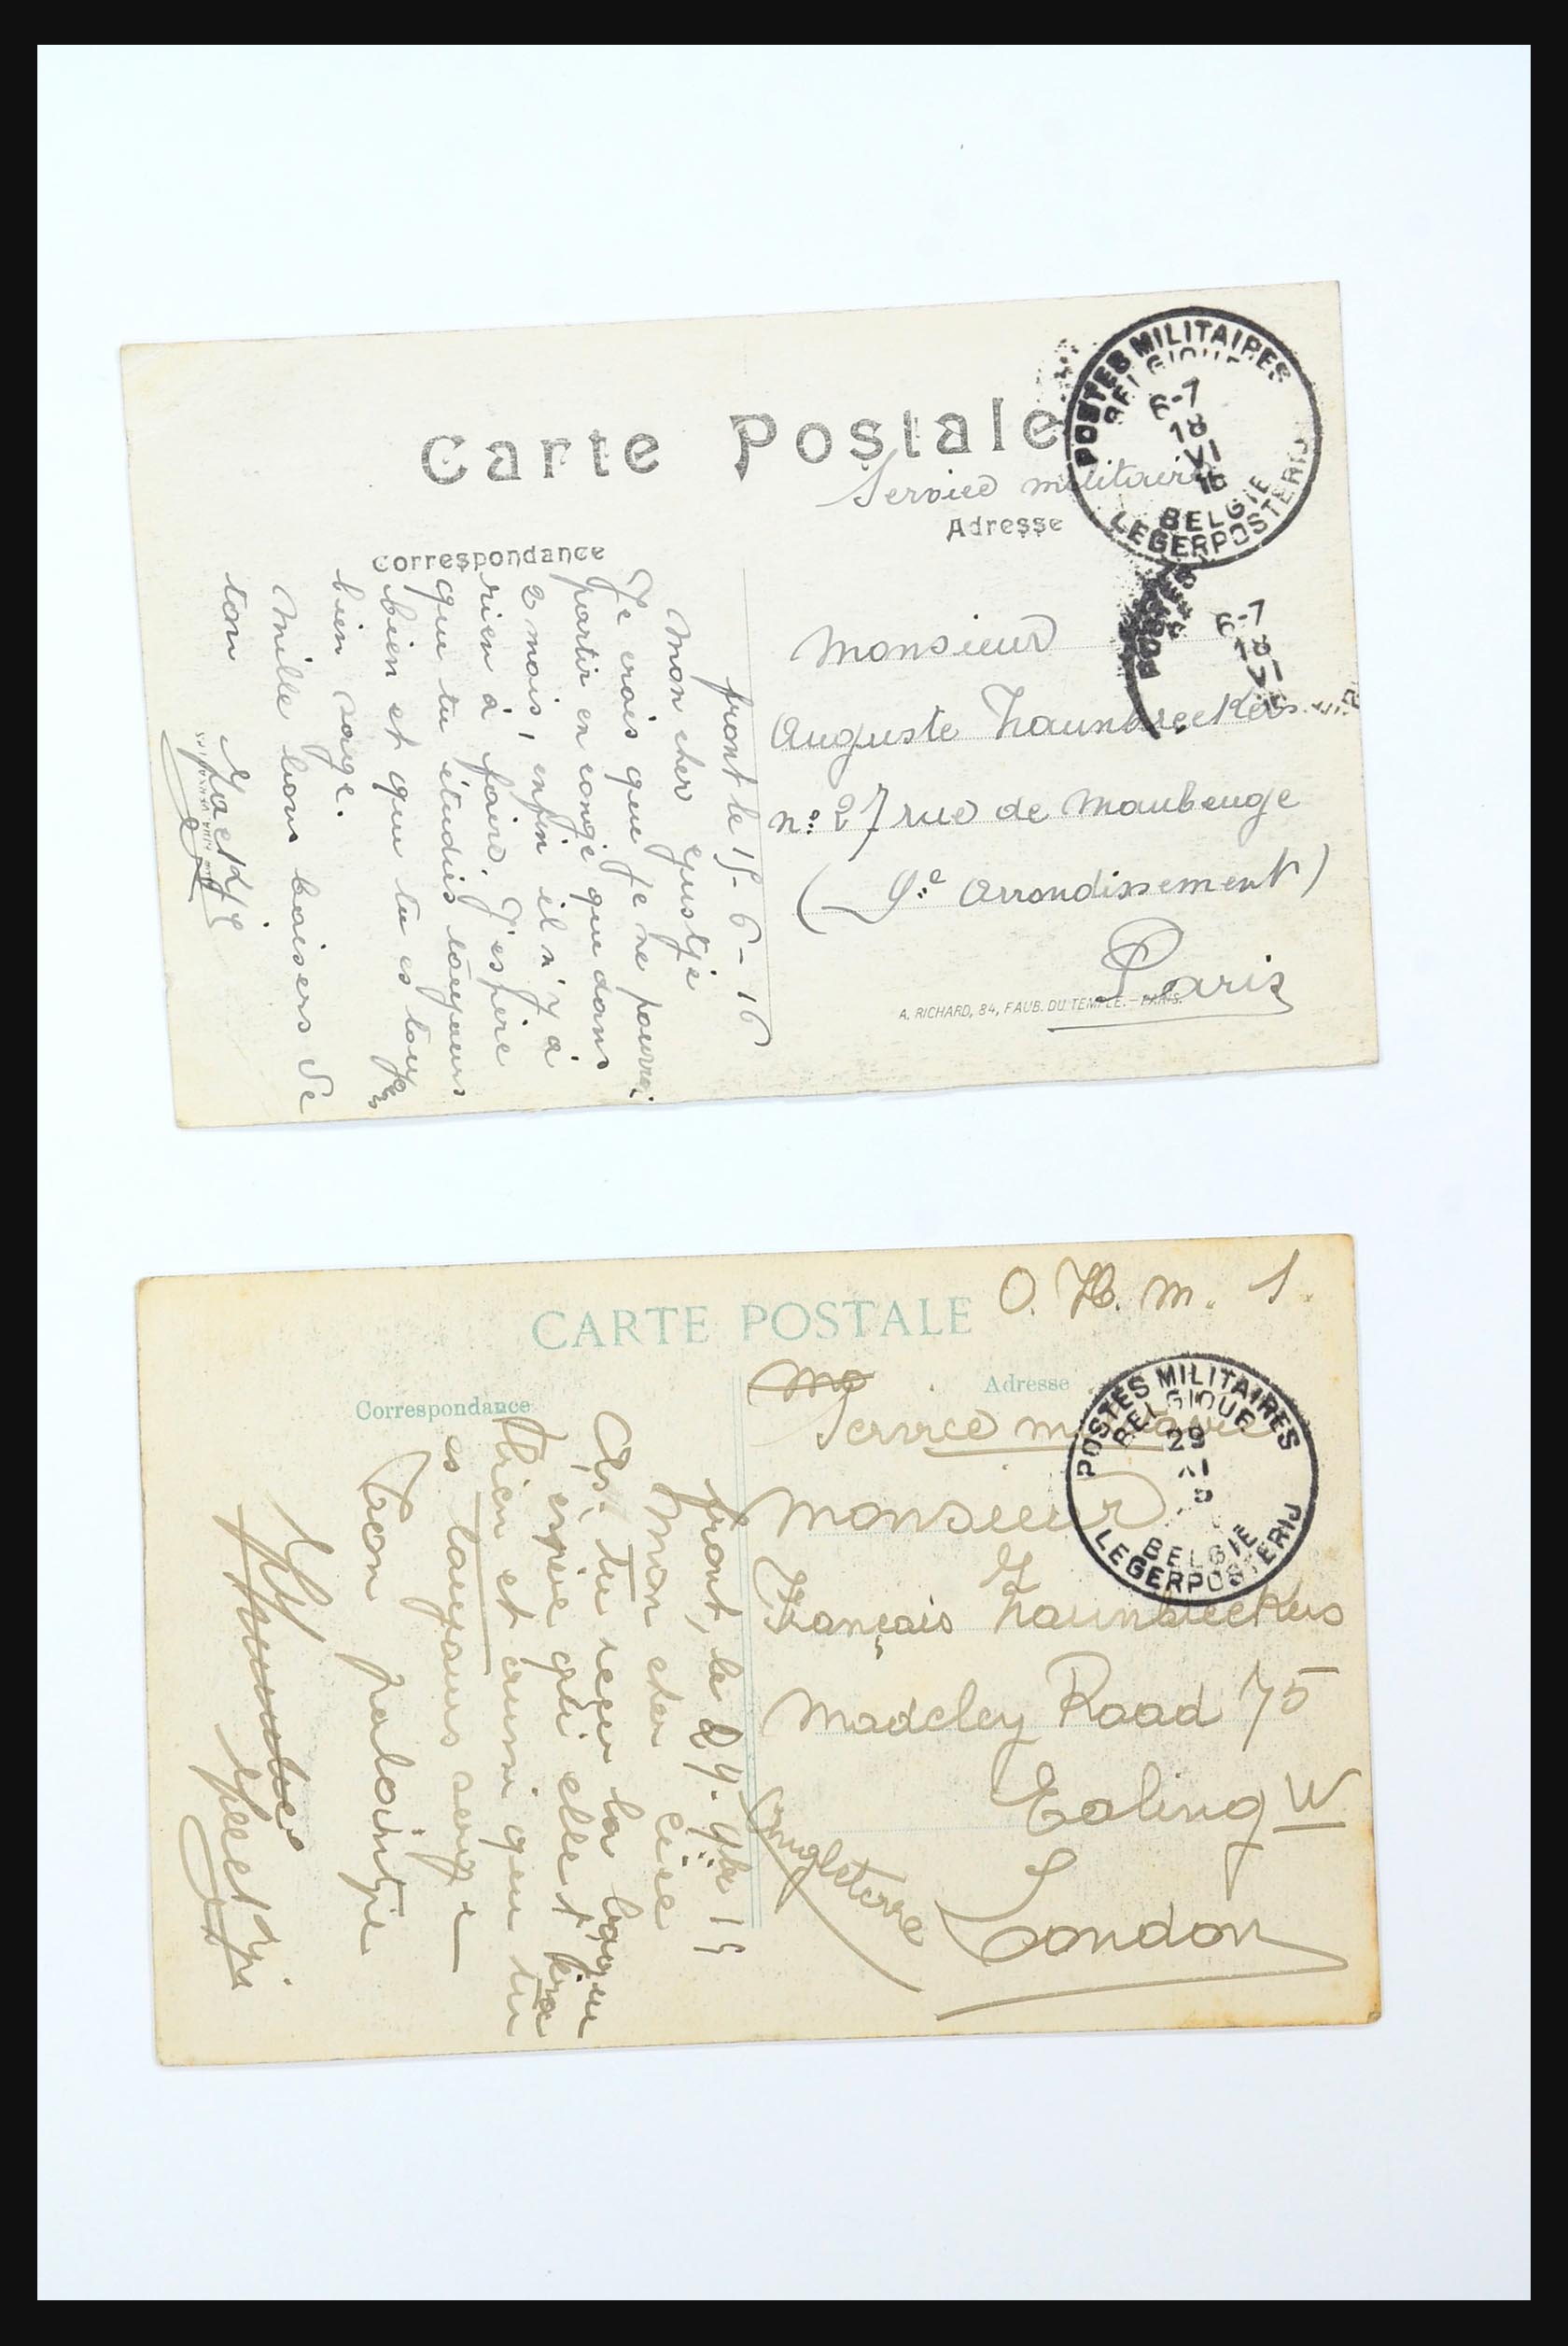 Carte Postale
Service militaire
POSTES MILITAIRES
BELGIQUE
6-7
18
VI
16
BELGIE
LEGERPOSTERIJ
Adresse
Correspondance
6-7
18
VI
Monsieur
Auguste
nº 27 rue de Maubeuge
( 9e Arrondissement )
Paris
A. RICHARD, 84, FAUB. DU TEMPLE. - PARIS.
front le 15-6-16
Mon cher
Je crois que je ne pourrai
partir en congé que dans
2 mois, enfin il n'y a
rien à faire, J'espère
que tu étudies toujours
bien et que tu es toujrs
bien sage.
Mille bons baisers de
ton
O. H. M. S.
CARTE POSTALE
Adresse
Service militaire
POSTES MILITAIRES
BELGIQUE
29
XI
BELGIE
LEGERPOSTERIJ
Correspondance
Monsieur
Français
Madeley Road 75
Ealing W
London
Angleterre
front, le 29. 9bre 15
Mon cher
As-tu reçu la bague
espère qu'elle t'ira
bien et aussi que tu
es toujours sage
Ton